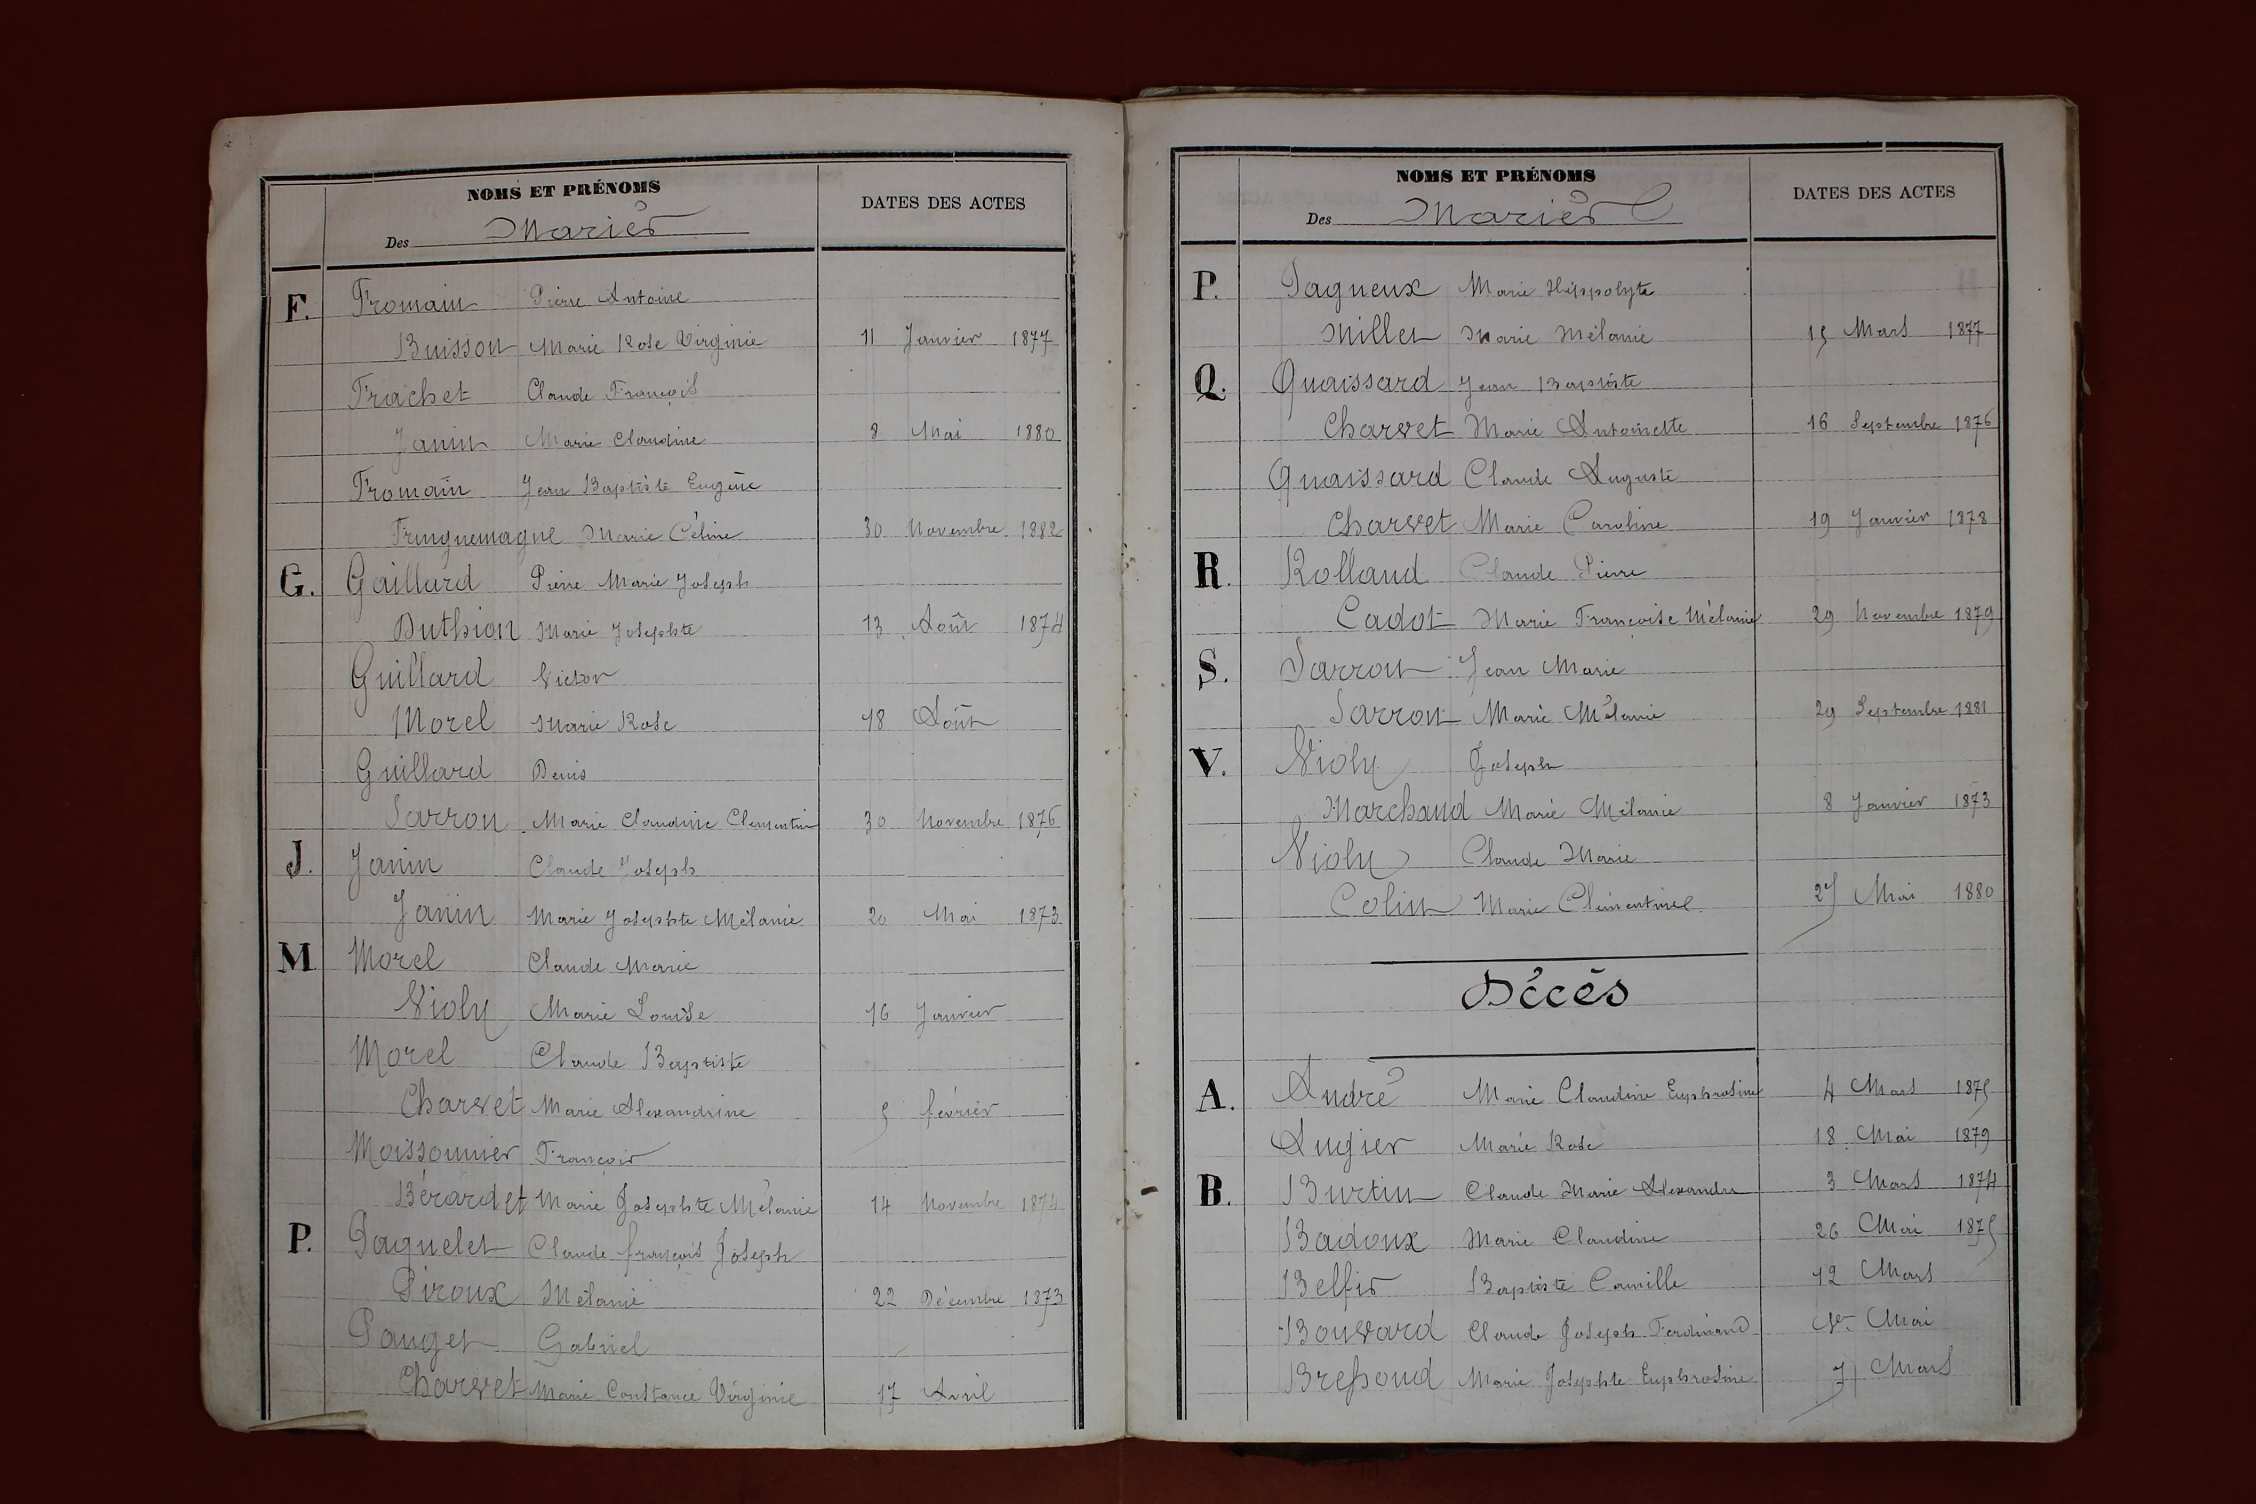 NOMS ET PRÉNOMS
DATES DES ACTES
Des Mariés
F. Fromain Pierre Antoine
Buisson Marie Rose Virginie 11 Janvier 1877
Frachet Claude François
Janin Marie Claudine 8 Mai 1880
Fromain Jean Baptiste Eugène
Marie Céline 30 Novembre 1882
G. Gaillard Pierre Marie Joseph
Duthion Marie Josephte 13 Août 1874
Guillard Victor
Morel Marie Rose 18 Août
Guillard Denis
Sarron Marie Claudine Clementin 30 Novembre 1876
J. Janin Claude Joseph
Janin Marie Josephte Mélanie 20 Mai 1873
M Morel Claude Marie
Violy Marie Louise 16 Janvier
Morel Claude Baptiste
Charvet Marie Alexandrine 5 février
Moissonnier François
Bérardet Marie Josephte Mélanie 14 Novembre 1874
P. Paguelet Claude françois Joseph
Piroux Mélanie 22 Décembre 1873
Pauget Gabriel
Charvet Marie Constance Virginie 17 Avril
NOMS ET PRÉNOMS
DATES DES ACTES
Des Mariés
P. Pagneux Marie Hippolyte
Millet Marie Mélanie 15 Mars 1877
Q. Quaissard Jean Baptiste
Charvet Marie Antoinette 16 Septembre 1876
Quaissard Claude Auguste
Charvet Marie Caroline 19 Janvier 1878
R. Rolland Claude Pierre
Cadot Marie Françoise Mélanie 29 Novembre 1879
S. Sarron Jean Marie
Sarron Marie Mélanie 29 Septembre 1881
V. Violy Joseph
Marchand Marie Mélanie 8 Janvier 1873
Violy Claude Marie
Colin Marie Clémentine 27 Mai 1880
Décés
A. André Marie Claudine Euphrosine 4 Mars 1875
Augier Marie Rose 18 Mai 1879
B. Burtin Claude Marie Alexandre 3 Mars 1874
Badoux Marie Claudine 26 Mai 1875
Belfis Baptiste Camille 12 Mars
Bouvard Claude Joseph Ferdinand 1er Mai
Bressoud Marie Josephte Euphrosine 7 Mars